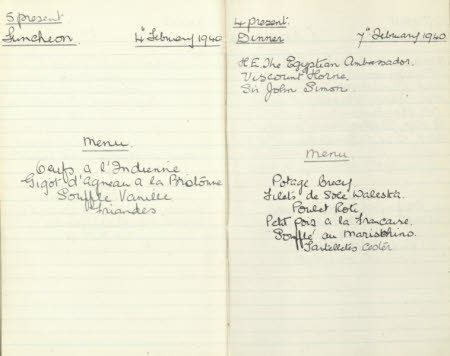 5 present
Luncheon. 4th February 1940
Menu
Oeufs a l'Indienne
Gigot d'Agneau a la Bretonne
Souffle Vanille
Friandes
4 present.
Dinner 7th February 1940
H.E. The Egyptian Ambassador.
Viscount Horne.
Sir John Simon.
Menu
Potage Crecy
Filets de Sole Waleska
Poulet Roti
Petit pois a la Francaise.
Soufflé au Marischino.
Tartelettes